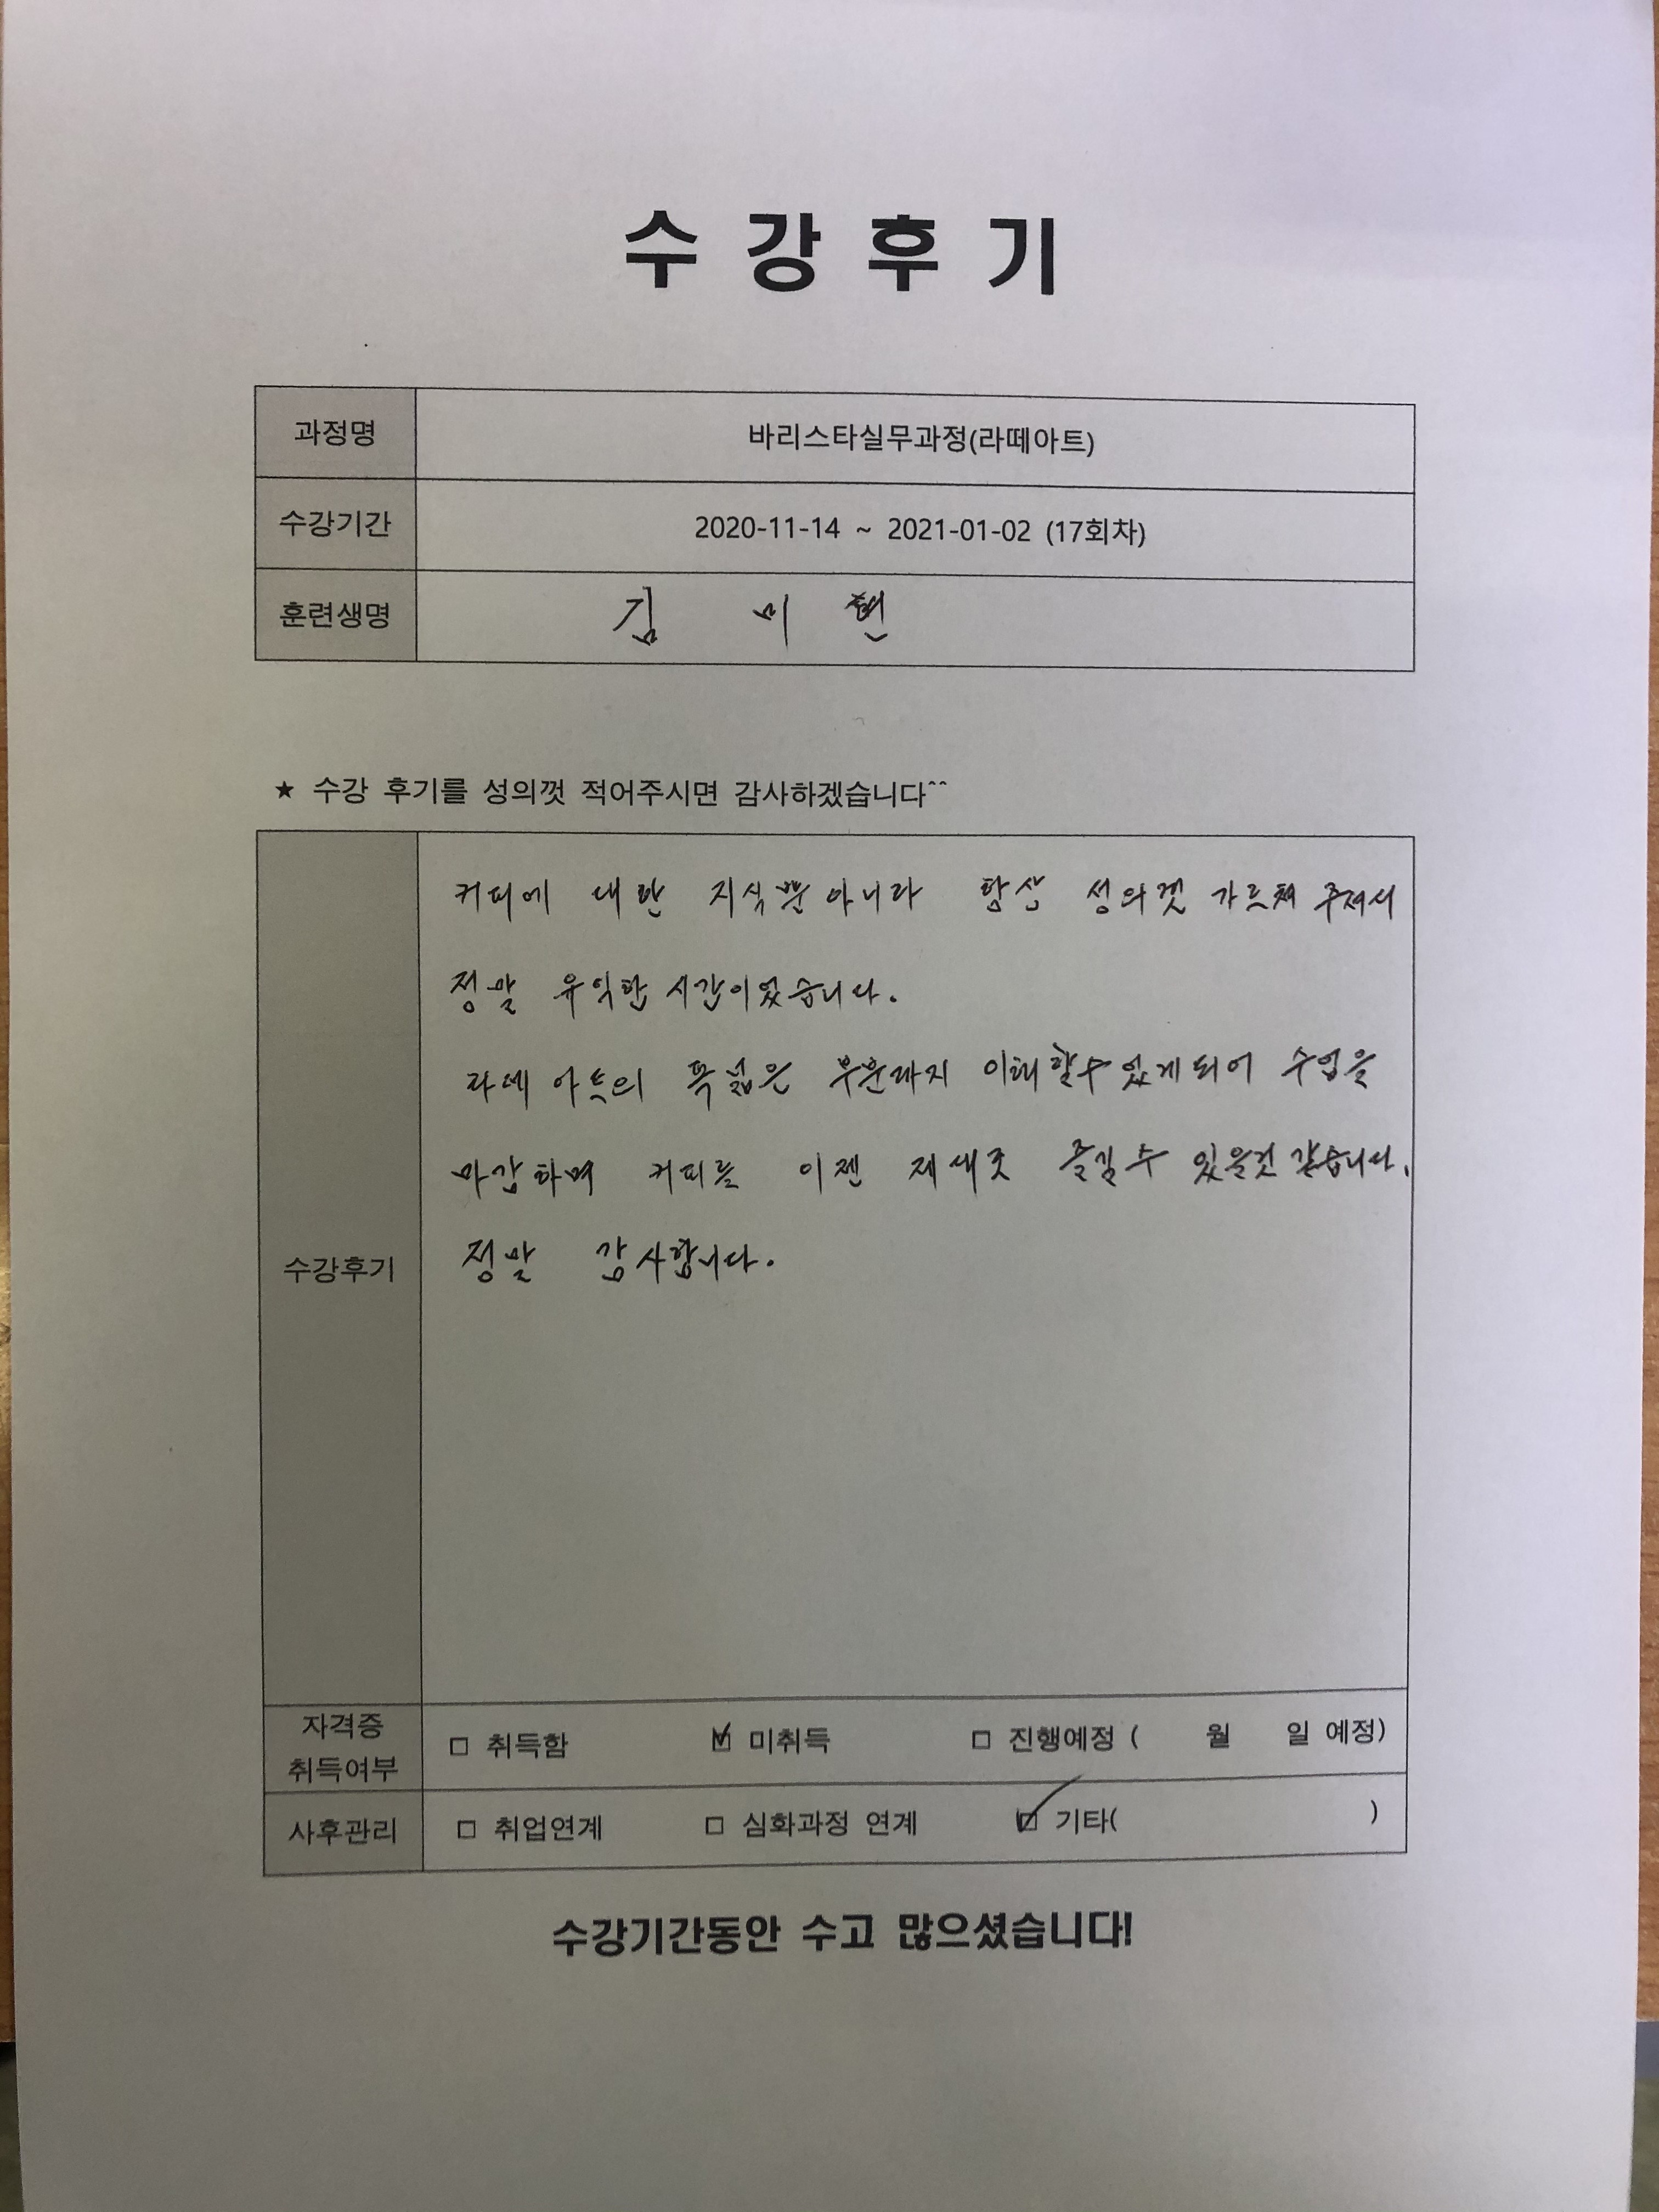 수강후기
과정명 바리스타실무과정(라떼아트)
수강기간 2020-11-14 ~ 2021-01-02 (17회차)
훈련생명 김 미 현
★ 수강 후기를 성의껏 적어주시면 감사하겠습니다^^
커피에 대한 지식뿐 아니라 항상 성의껏 가르쳐 주셔서
정말 유익한 시간이었습니다.
라떼 아트의 폭넓은 부분까지 이해할수 있게되어 수업을
마감하며 커피를 이젠 제대로 즐길 수 있을것 같습니다.
수강후기 정말 감사합니다.
자격증
취득여부 □ 취득함 ☑ 미취득 □ 진행예정 ( 월 일 예정)
사후관리 □ 취업연계 □ 심화과정 연계 ☑ 기타( )
수강기간동안 수고 많으셨습니다!